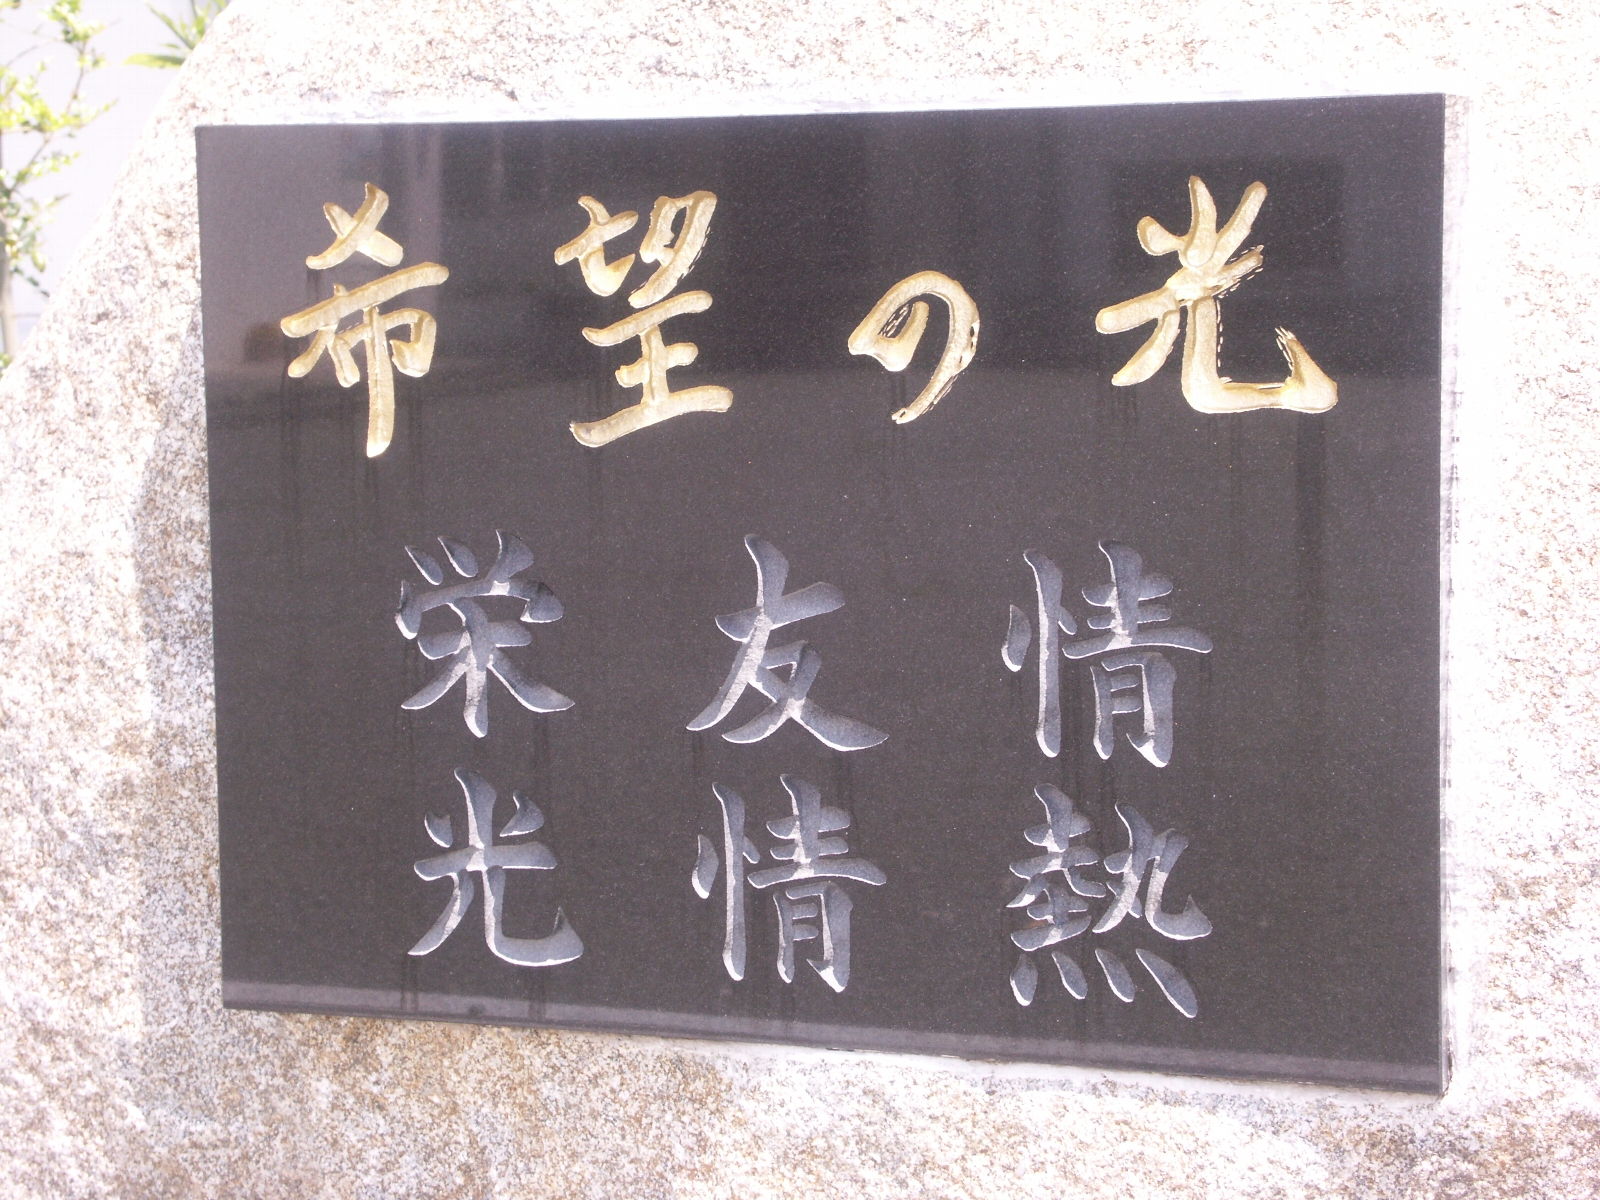 希望の光
情熱
友情
栄光